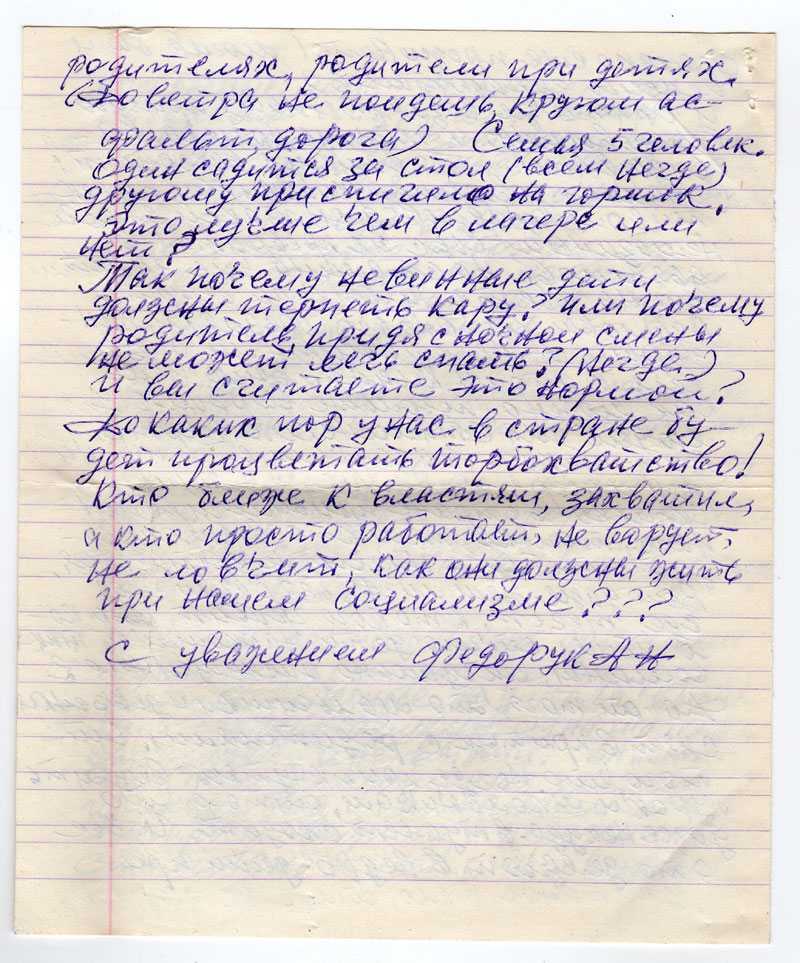 родителях, родители при детях.
(До ветра не пойдешь, кругом ас-
фальт, дорога) Семья 5 человек.
Один садится за стол (всем негде)
другому приспичило на горшок.
Это лучше чем в лагере или
нет?
Так почему невинные дети
должны терпеть кару? или почему
родитель, придя с ночной смены
не может лечь спать? (Негде.)
И вы считаете это нормой?
До каких пор у нас в стране бу-
дет процветать торбохватство!
Кто ближе к властям, захватил,
а кто просто работает, не ворует,
не ловчит, как они должны жить
при нашем социализме???
С уважением Федорук А Н